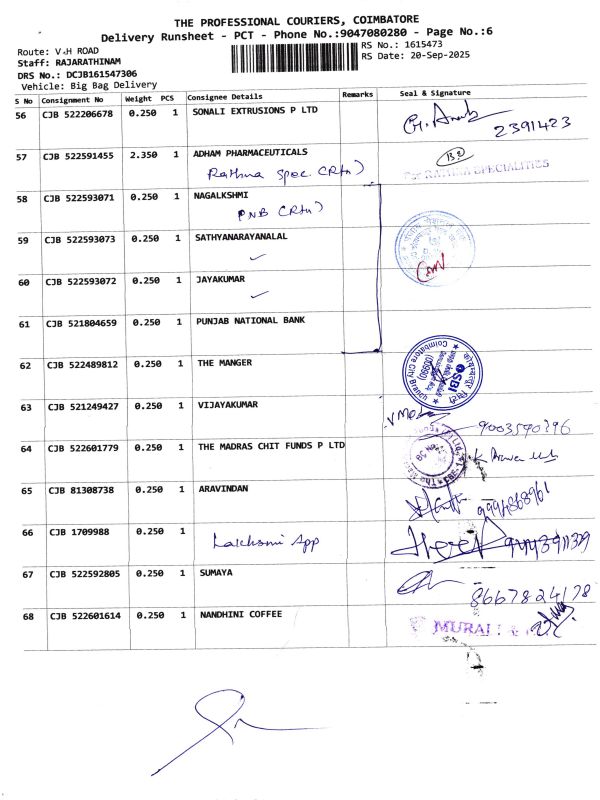 THE PROFESSIONAL COURIERS, COIMBATORE
Delivery Runsheet - PCT - Phone No.:9047080280 - Page No.:6
Route: V.H ROAD
Staff: RAJARATHINAM
DRS No.: DCJB161547306
Vehicle: Big Bag Delivery
RS No.: 1615473
RS Date: 20-Sep-2025
S No Consignment No Weight PCS Consignee Details Remarks Seal & Signature
56 CJB 522206678 0.250 1 SONALI EXTRUSIONS P LTD
2391423
57 CJB 522591455 2.350 1 ADHAM PHARMACEUTICALS
Rathna Spec (Rtn)
For RATHNA SPECIALITIES
58 CJB 522593071 0.250 1 NAGALKSHMI
PNB (Rtn)
59 CJB 522593073 0.250 1 SATHYANARAYANALAL
60 CJB 522593072 0.250 1 JAYAKUMAR
61 CJB 521804659 0.250 1 PUNJAB NATIONAL BANK
62 CJB 522489812 0.250 1 THE MANGER
SBI
Coimbatore City Branch
63 CJB 521249427 0.250 1 VIJAYAKUMAR
9003590296
64 CJB 522601779 0.250 1 THE MADRAS CHIT FUNDS P LTD
65 CJB 81308738 0.250 1 ARAVINDAN
9994868961
66 CJB 1709988 0.250 1 Lakksmi App
67 CJB 522592805 0.250 1 SUMAYA
8667824178
68 CJB 522601614 0.250 1 NANDHINI COFFEE
MURALI